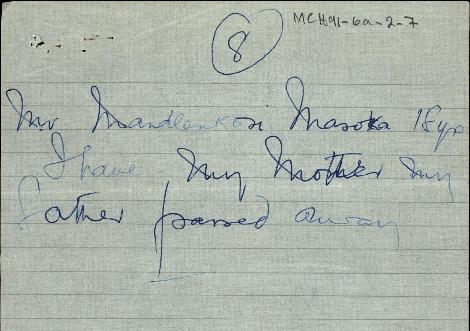 MCH91-6a-2-7
8
Mr Mandlenkosi Masoka 18yrs
I have my Mother my
father passed away